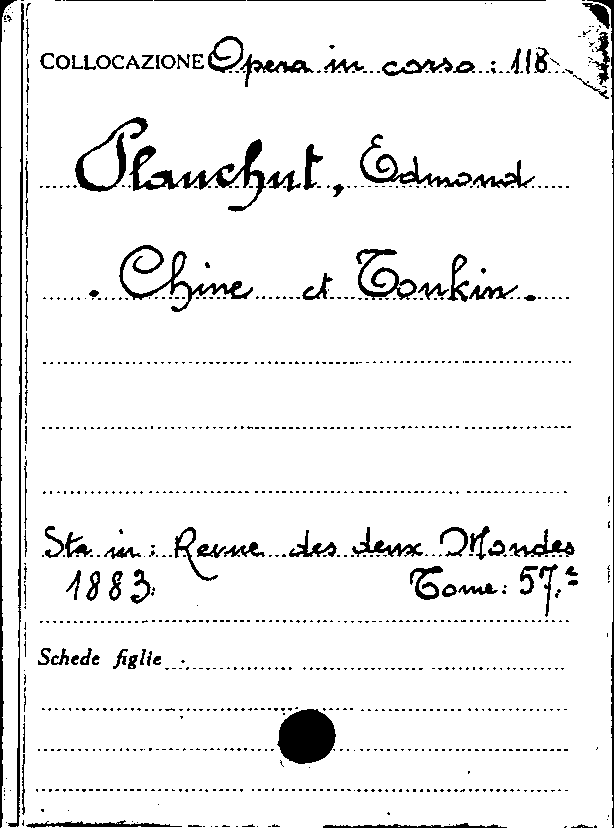 COLLOCAZIONE Opera in corso : 118
Plauchut, Edmond
. Chine et Tonkin.
Sta in : Revue des deux Mondes
1883. Tome : 57.e
Schede figlie